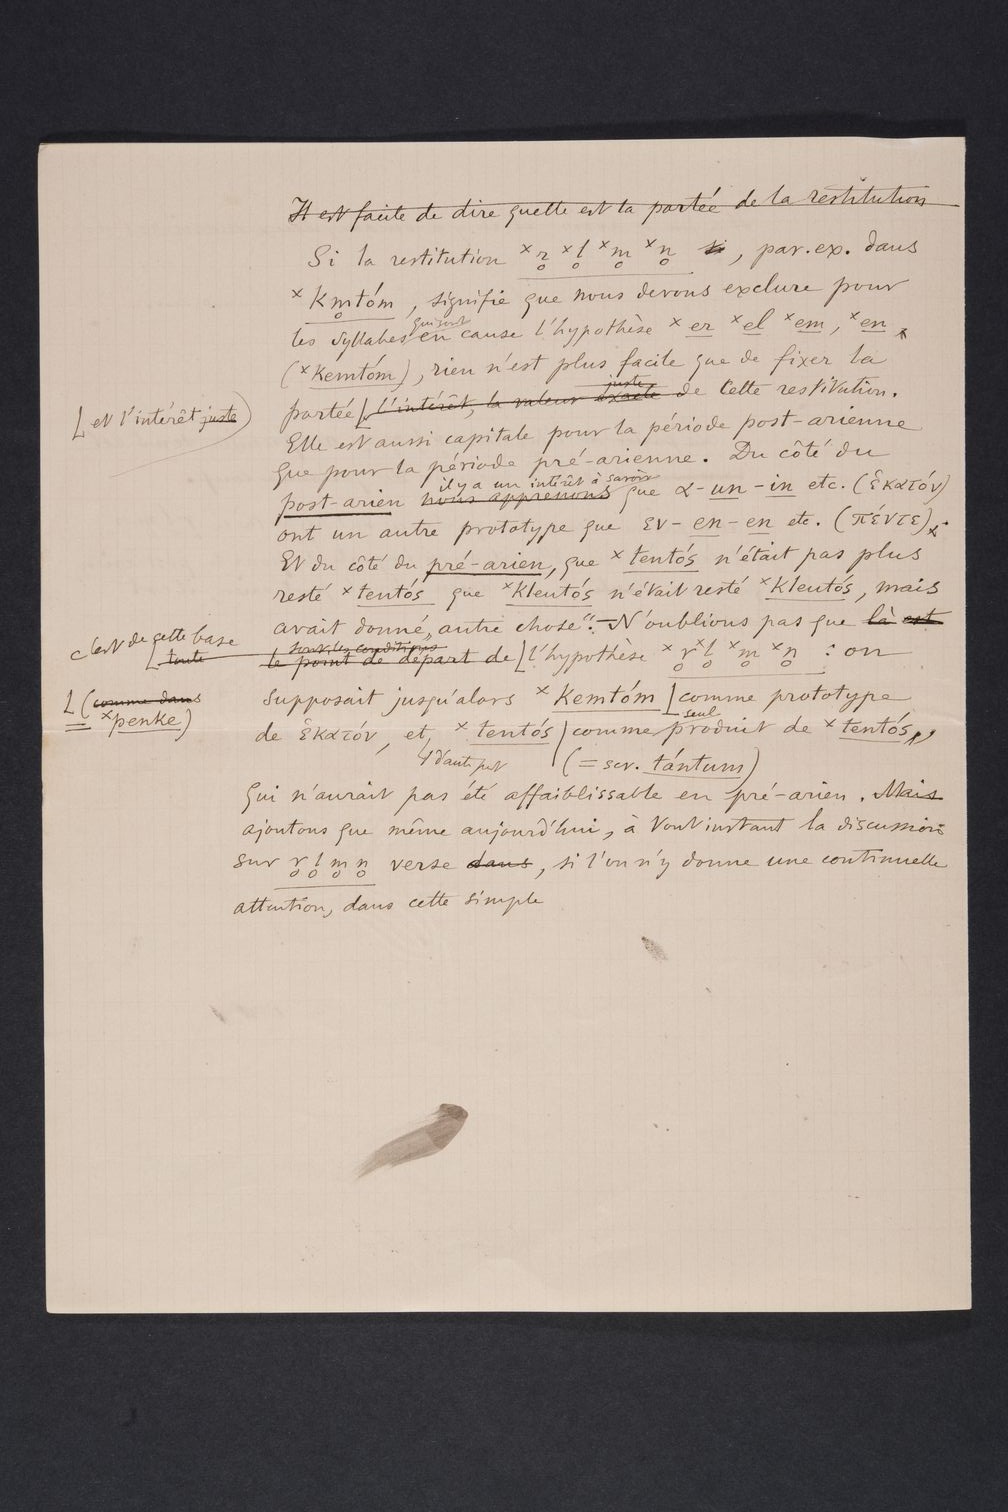 Il est facile de dire quelle est la portée de la restitution
Si la restitution ˣr̥ ˣl̥ ˣm̥ ˣn̥, par. ex. dans
ˣkm̥tóm, signifie que nous devons exclure pour
les syllabes qui sont en cause l'hypothèse ˣer ˣel ˣem, ˣen
(ˣkemtóm), rien n'est plus facile que de fixer la
portée [l'intérêt, la valeur exacte juste de cette restitution.
[et l'intérêt juste)
Elle est aussi capitale pour la période post-arienne
que pour la période pré-arienne. Du côté du
post-arien nous apprenons il y a un intérêt à savoir que α-un-in etc. (ἑκατόν)
ont un autre prototype que εν-en-en etc. (πέντε).
Et du côté du pré-arien, que ˣtentós n'était pas plus
resté ˣtentós que ˣkleutós n'était resté ˣkleutós, mais
avait donné „autre chose“. – N'oublions pas que là est
c'est de cette base
[toute le point de départ de sont les conditions [l'hypothèse ˣr̥ ˣl̥ ˣm̥ ˣn̥ : on
supposait jusqu'alors ˣkemtóm [comme prototype
[(comme dans
ˣpenke)
de ἑκατόν, et, d'autre part ˣtentós (= scr. tántum) comme seul produit de ˣtentós,
qui n'aurait pas été affaiblissable en pré-arien. Mais
ajoutons que même aujourd'hui, à tout instant la discussion
sur r̥ l̥ m̥ n̥ verse dans, si l'on n'y donne une continuelle
attention, dans cette simple